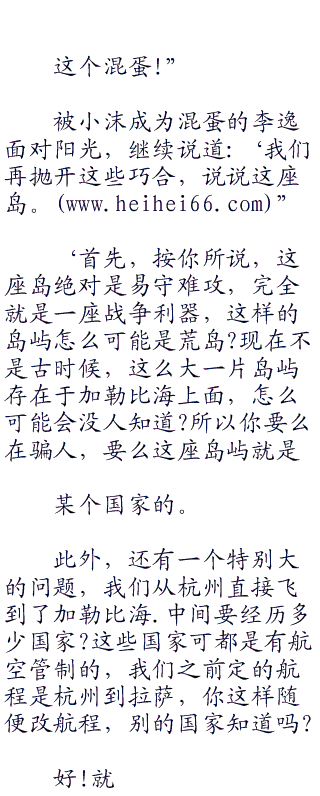 这个混蛋!”
被小沫成为混蛋的李逸
面对阳光，继续说道:‘我们
再抛开这些巧合，说说这座
岛。(www.heihei66.com)”
‘首先，按你所说，这
座岛绝对是易守难攻，完全
就是一座战争利器，这样的
岛屿怎么可能是荒岛?现在不
是古时候，这么大一片岛屿
存在于加勒比海上面，怎么
可能会没人知道?所以你要么
在骗人，要么这座岛屿就是
某个国家的。
此外，还有一个特别大
的问题，我们从杭州直接飞
到了加勒比海.中间要经历多
少国家?这些国家可都是有航
空管制的，我们之前定的航
程是杭州到拉萨，你这样随
便改航程，别的国家知道吗?
好!就